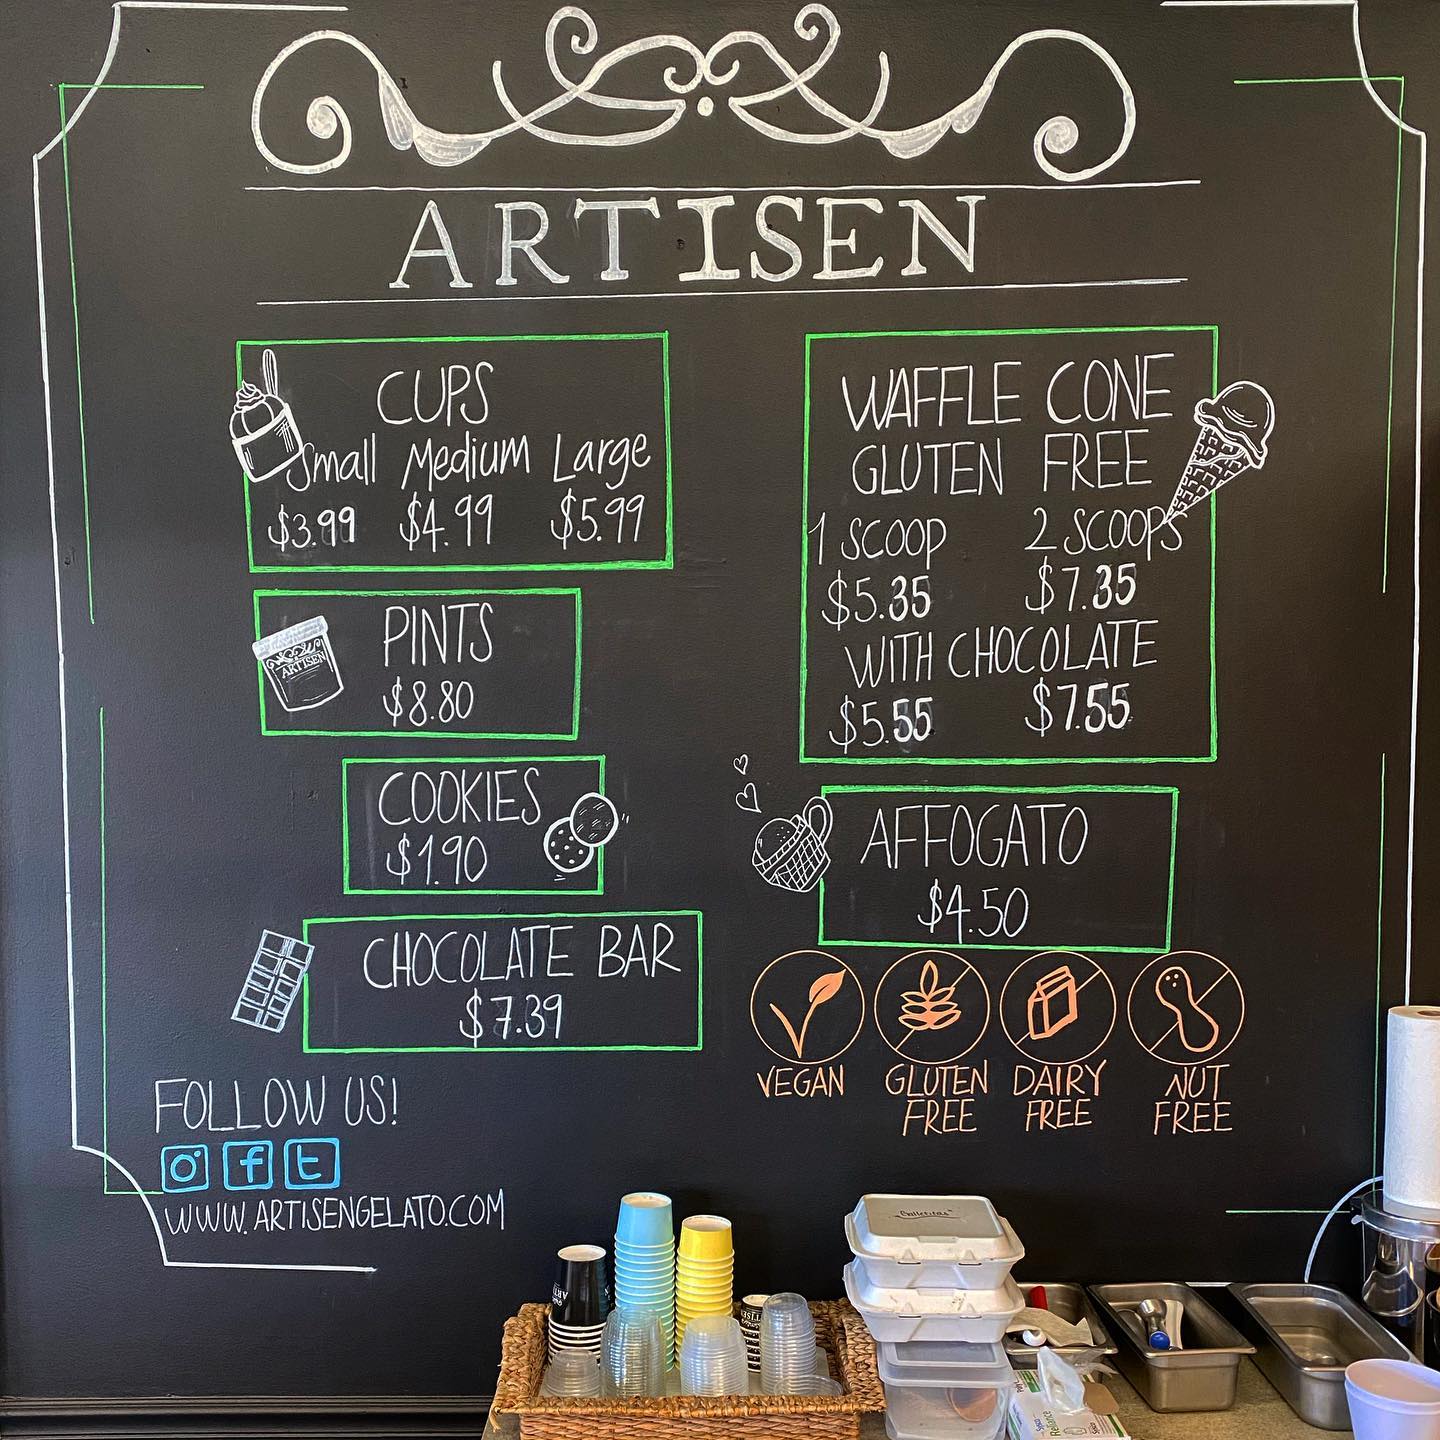 ARTISEN
CUPS
Small Medium Large
$3.99 $4.99 $5.99
PINTS
$8.80
ARTISEN
COOKIES
$1.90
CHOCOLATE BAR
$7.39
WAFFLE CONE
GLUTEN FREE
1 SCOOP 2 SCOOPS
$5.35 $7.35
WITH CHOCOLATE
$5.55 $7.55
AFFOGATO
$4.50
VEGAN
GLUTEN
FREE
DAIRY
FREE
NUT
FREE
FOLLOW US!
f t
WWW.ARTISENGELATO.COM
Reliance